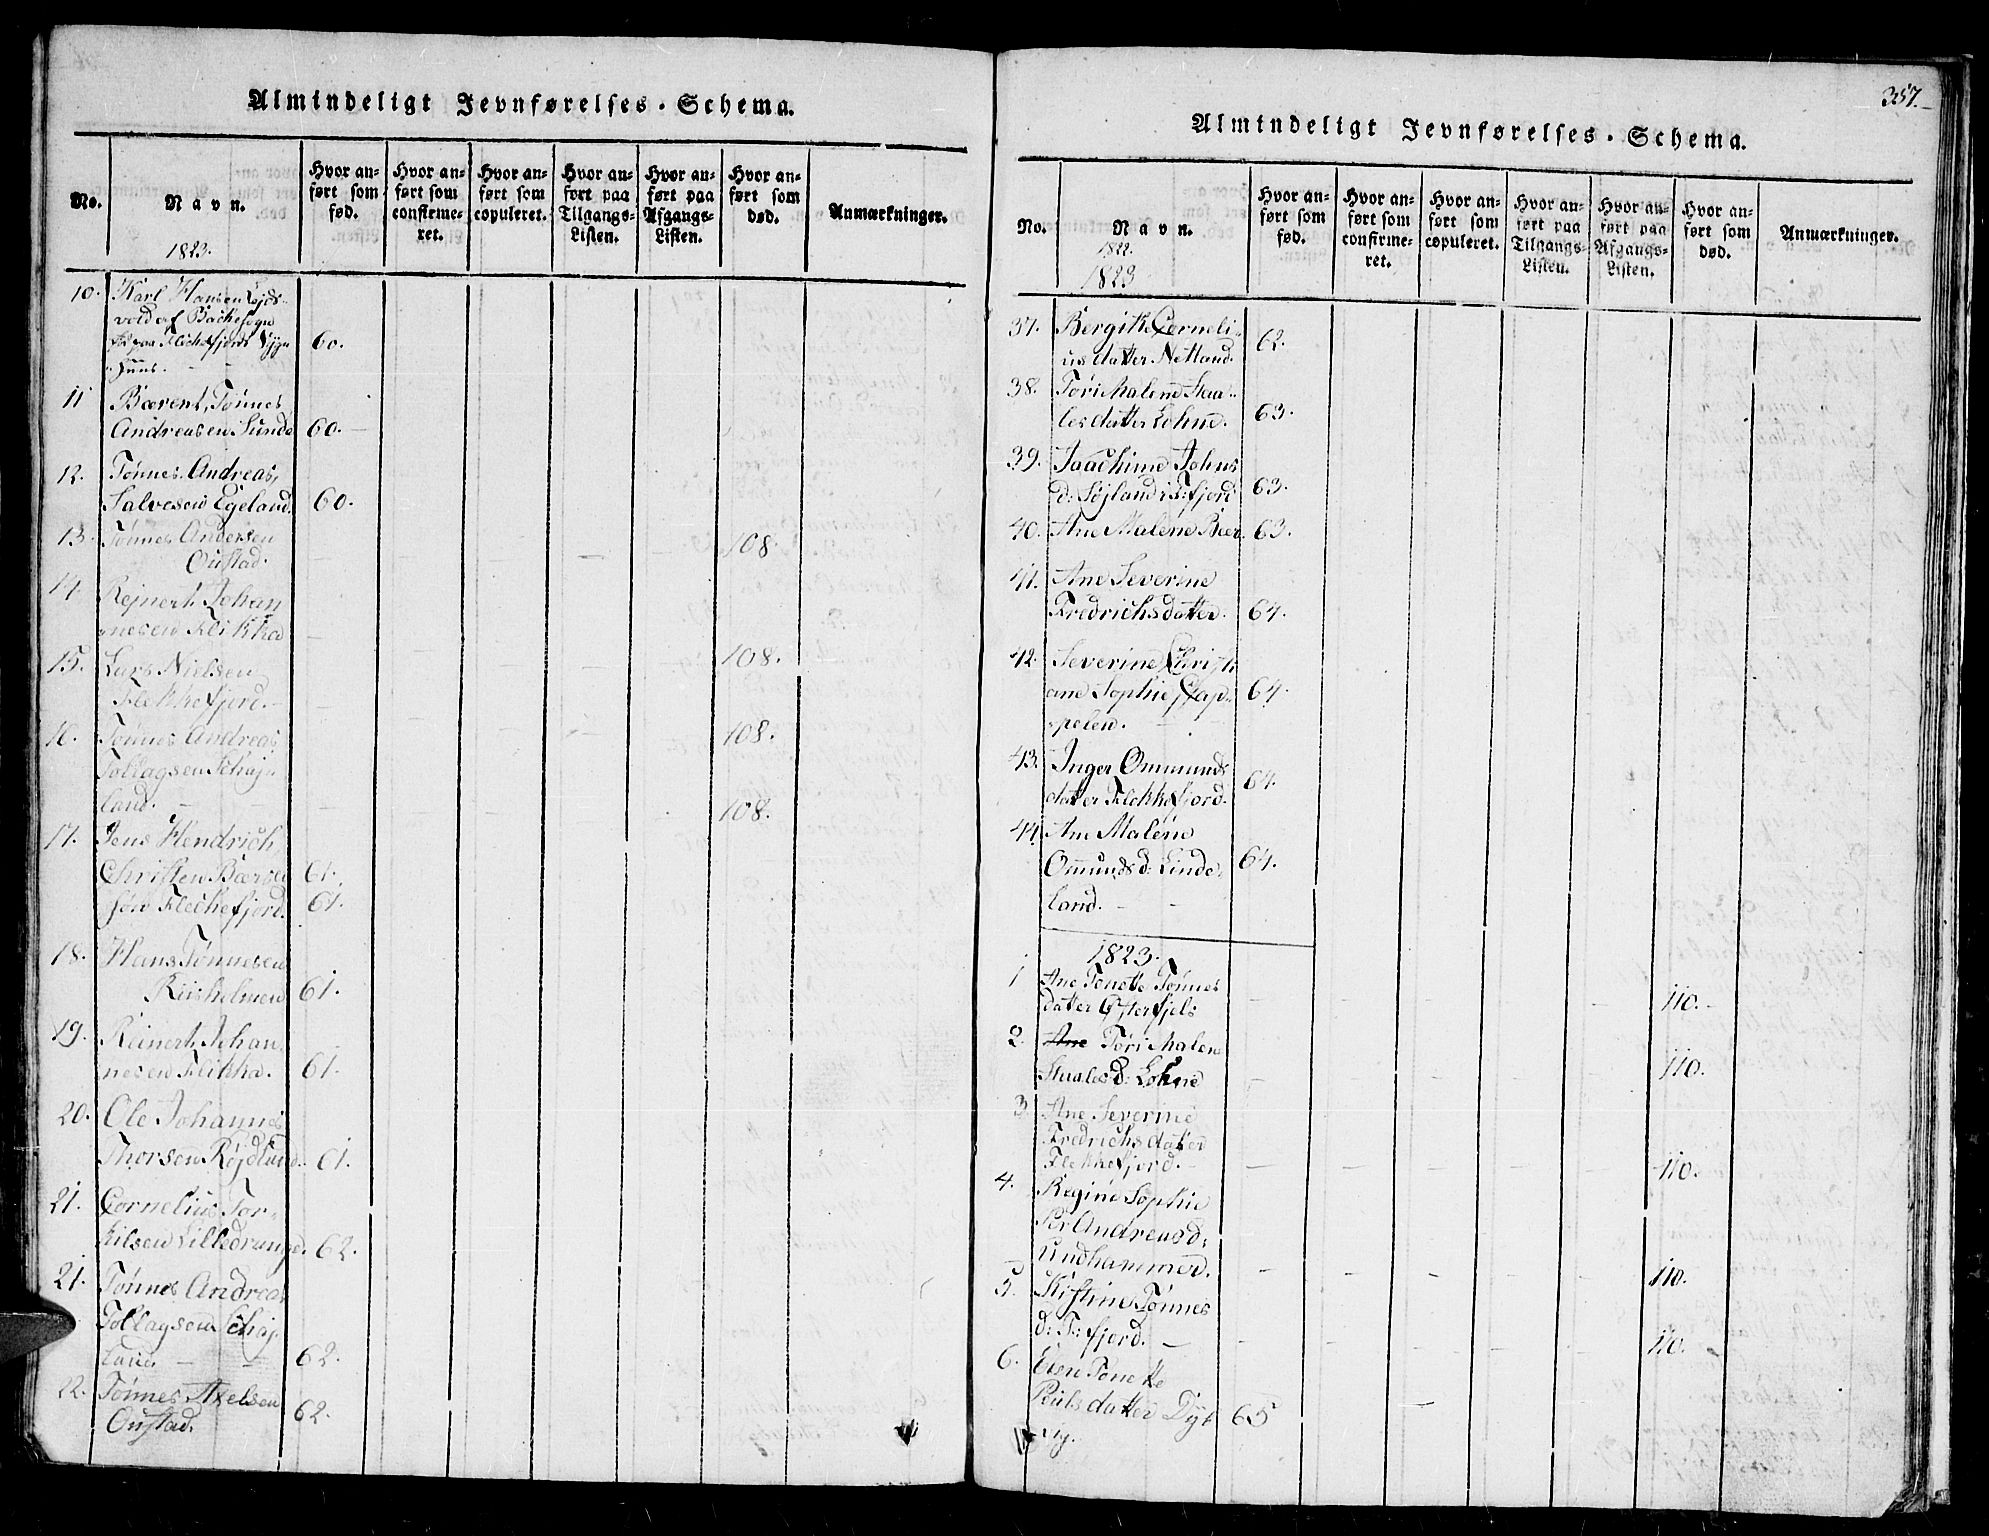 Almindeligt Jevnførelses-Schema.
No.
Navn.
Hvor anført som fød.
Hvor anført som confirmeret.
Hvor anført som copuleret.
Hvor anført paa Tilgangs-Listen.
Hvor anført paa Afgangs-Listen.
Hvor anført som død.
Anmærkninger.
1823.
10. Karl Hansen
vold af Bakke sogn
paa Flechefjords
Huus.
60.
11 Bærent, Tønnes
Andreasen Sunde 60.
12. Tønnes Andreas,
Salvesen Egeland. 60.
13. Tønnes Andersen
Oustad. 108.
14. Rejnert Johan
nesen Flikka
15. Lars Nielsen 108.
Flekkefjord.
16. Tønnes Andreas 108.
Tollagsen Schaj
land. 108.
17. Jens Hendrich
Christen Bærent 61.
søn Flechefjord. 61.
18. Hans Tønnesen
Riisholmen 61.
19. Reinert Johan
nesen Flikka. 61.
20. Ole Johannes
Thorsen Røjdland. 61.
21. Cornelius Tor-
kilsen Lilledrange. 62.
21. Tønnes Andreas
Tollagsen Schaj
land. 62.
22. Tønnes Axelsen
Oustad. 62.
357.
Almindeligt Jevnførelses-Schema.
No.
Navn.
Hvor anført som fød.
Hvor anført som confirmeret.
Hvor anført som copuleret.
Hvor anført paa Tilgangs-Listen.
Hvor anført paa Afgangs-Listen.
Hvor anført som død.
Anmærkninger.
1822.
1823
37. Bergithe Corneli
us datter Netland. 62.
38. Tøri Malene Staa-
les datter Lohne. 63.
39. Joachime Johns
d: Søjland i F:fjord 63.
40. Ane Malene Beer 63.
41. Ane Severine
Fredrichsdatter. 64.
42. Severine Christi
ane Sophie Stap- 64.
pelen.
43. Inger Ommunds
datter Flekkefjord. 64.
44. Ane Malene
Omunds d: Linde- 64.
land.
1823.
1 Ane Tonette Tønnes
datter Østerfjels 110.
2. Ane Tøri Malene
Staales d: Lohne 110.
3. Ane Severine
Fredrichs datter
Flekkefjord. 110.
4. Regine Sophie
Per Andreas d:
Undhammer. 110.
5. Kistine Tønnes
d: F:fjord. 110.
6. Elen Tonette
Pouls datter Dyb 65
vig.